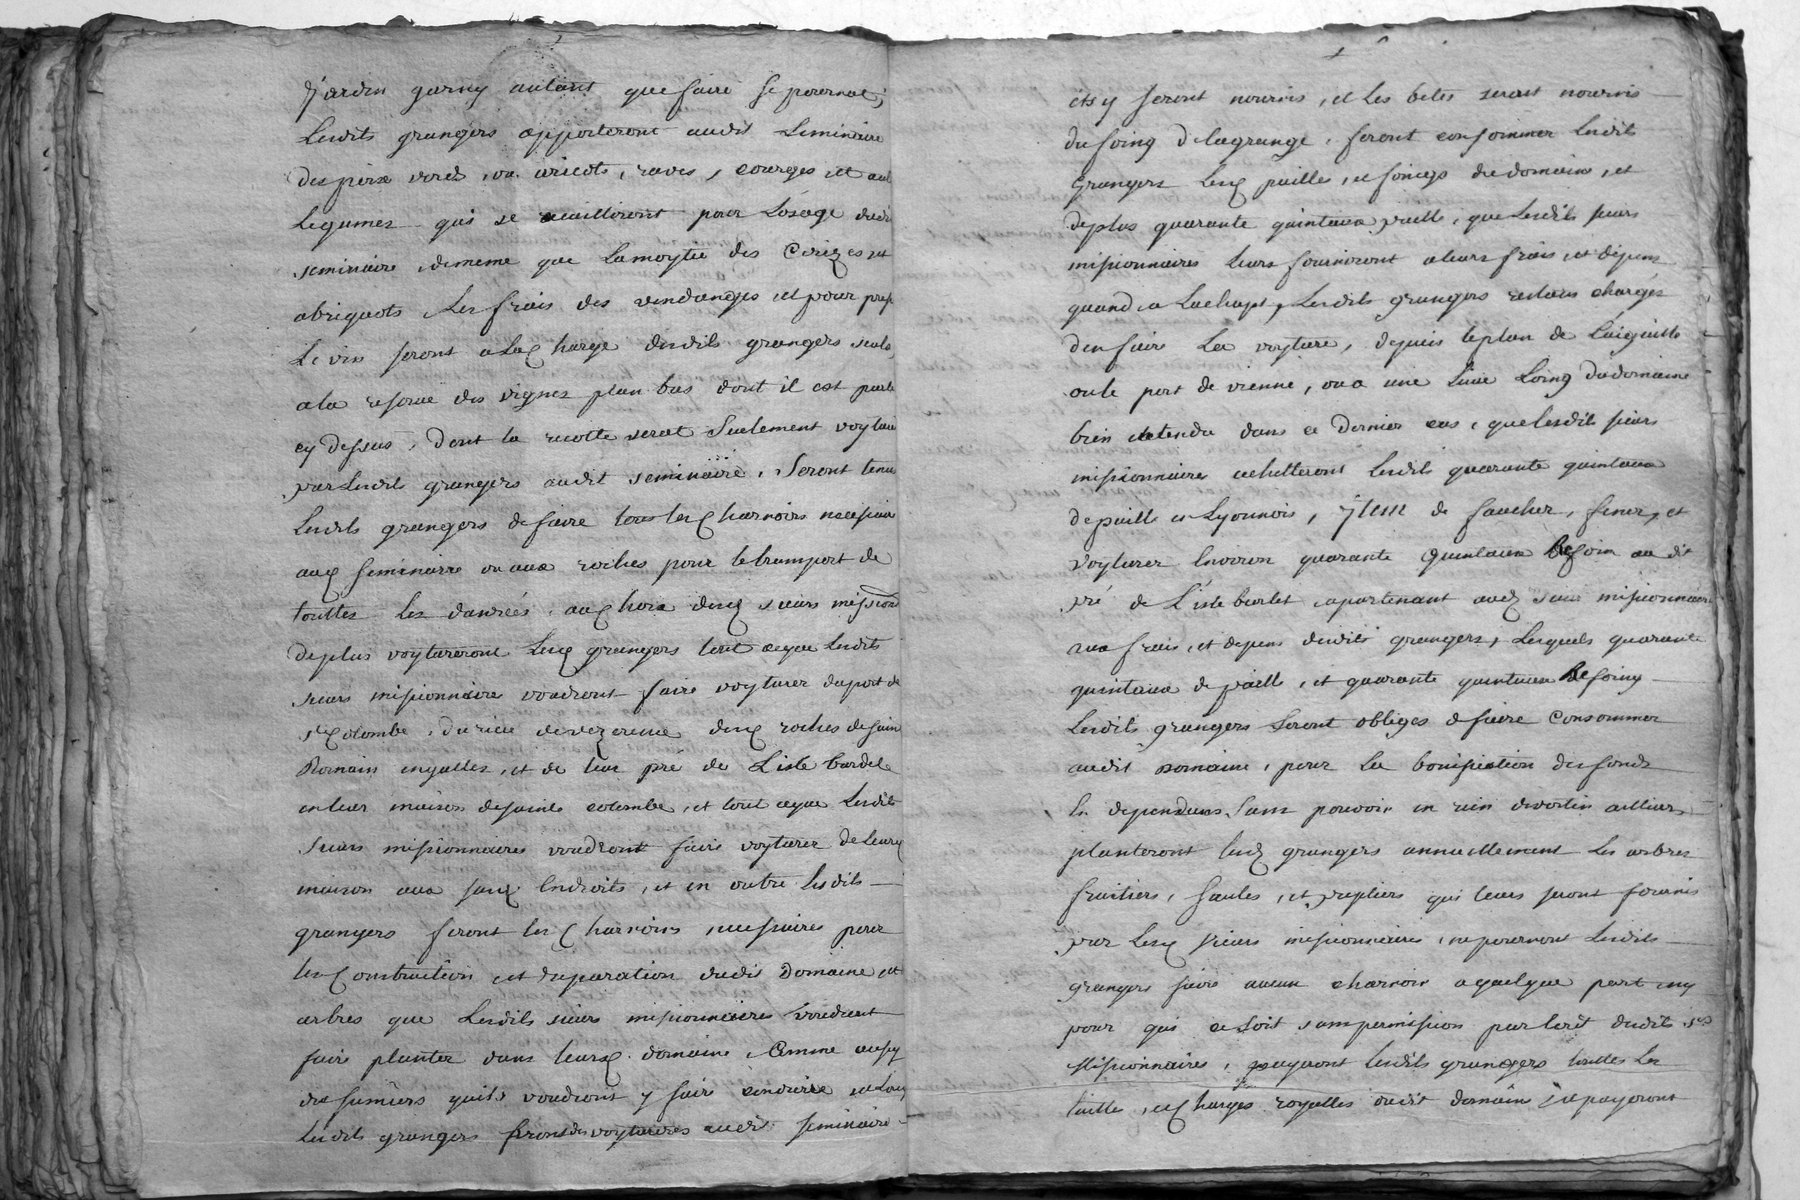 jardin garny autant que faire se pourrat,
Lesdits grangers apporteront audit Seminaire
des poix verds, ou aricots, raves, courges, et aut
Legumes qui se ceuilliront pour Losage dudit
seminaire, de meme que La moytié des Cerizes et
abriquots Les frais des vendanges et pour press
Le vin seront a La Charge desdits grangers seuls,
a la reserve des vignes plan bas dont il est parlé
cy dessus, dont la recolte serat Seulement voyturé
par Lesdits grangers audit seminaire, Seront tenus
Lesdits grangers de faire tous les Charroirs necessaires
aud Seminaire ou aux roches pour le transport de
touttes les danrées, au Choix desd sieurs mission
de plus voytureront Lesd grangers tout ce que Lesdits
sieurs missionnaire voudront faire voyturer du port de
Ste Colombe, du rieu de vezerance desd roches de saint
Romain en galles, et de leur pré de L'isle bardel
en leur maison de sainte colombe, et tout ce que Lesdits
Sieurs missionnaires voudront faire voyturer de Leurd
maison aux susd Endroits, et en outre Lesdits
grangers feront les Charroirs necessaires pour
les Construction et reparation dudit Domaine et
arbres que Lesdits sieurs missionnaires voudront
faire planter dans leurd domaine, Comme aussy
des fumiers quils voudront y faire conduire et Lors
Lesdits grangers feront des voytures audit Seminaire
ils y seront nourris, et Les betes seront nourris
du foing de la grange, feront consommer Lesdits
Grangers Lesd pailles, et foings du domaine, et
de plus quarante quintaux paille, que Lesdits sieurs
missionnaires Leurs fourniront a leurs frais et depens
quand a Lachapt, Lesdits grangers restans chargés
den faire La voyture, depuis le plan de Laiguille
ou le port de vienne, ou a une Lieue Loing du domaine
bien entendu dans ce Dernier cas, que lesdits sieurs
missionnaires achetteront Lesdits quarante quintaux
de paille en Lyonnois, jtem de faucher, fener, et
voyturer Environ quarante quintaux de foin au dit
pré de L'isle barlet apartenant aud sieurs missionnaire
aux frais, et depens desdits grangers, Lesquels quarante
quintaux de paille, et quarante quintaux de foing
Lesdits grangers Seront obligés de faire Consommer
audit domaine, pour La bonification des fonds
En dependans, Sans pouvoir en rien divertir ailleurs,
planteront lesd grangers annuellement Les arbres
fruitiers, Saules, et pupliers qui leurs seront fournis
par Lesd Sieurs missionnaires, ne pourront Lesdits
grangers faire aucun charroir a quelque part ny
pour qui ce soit sans permission par Ecrit desdits Srs
Missionnaires, payeront lesdits grangers touttes Les
taille, et Charges royalles dudit domaine, et payeront